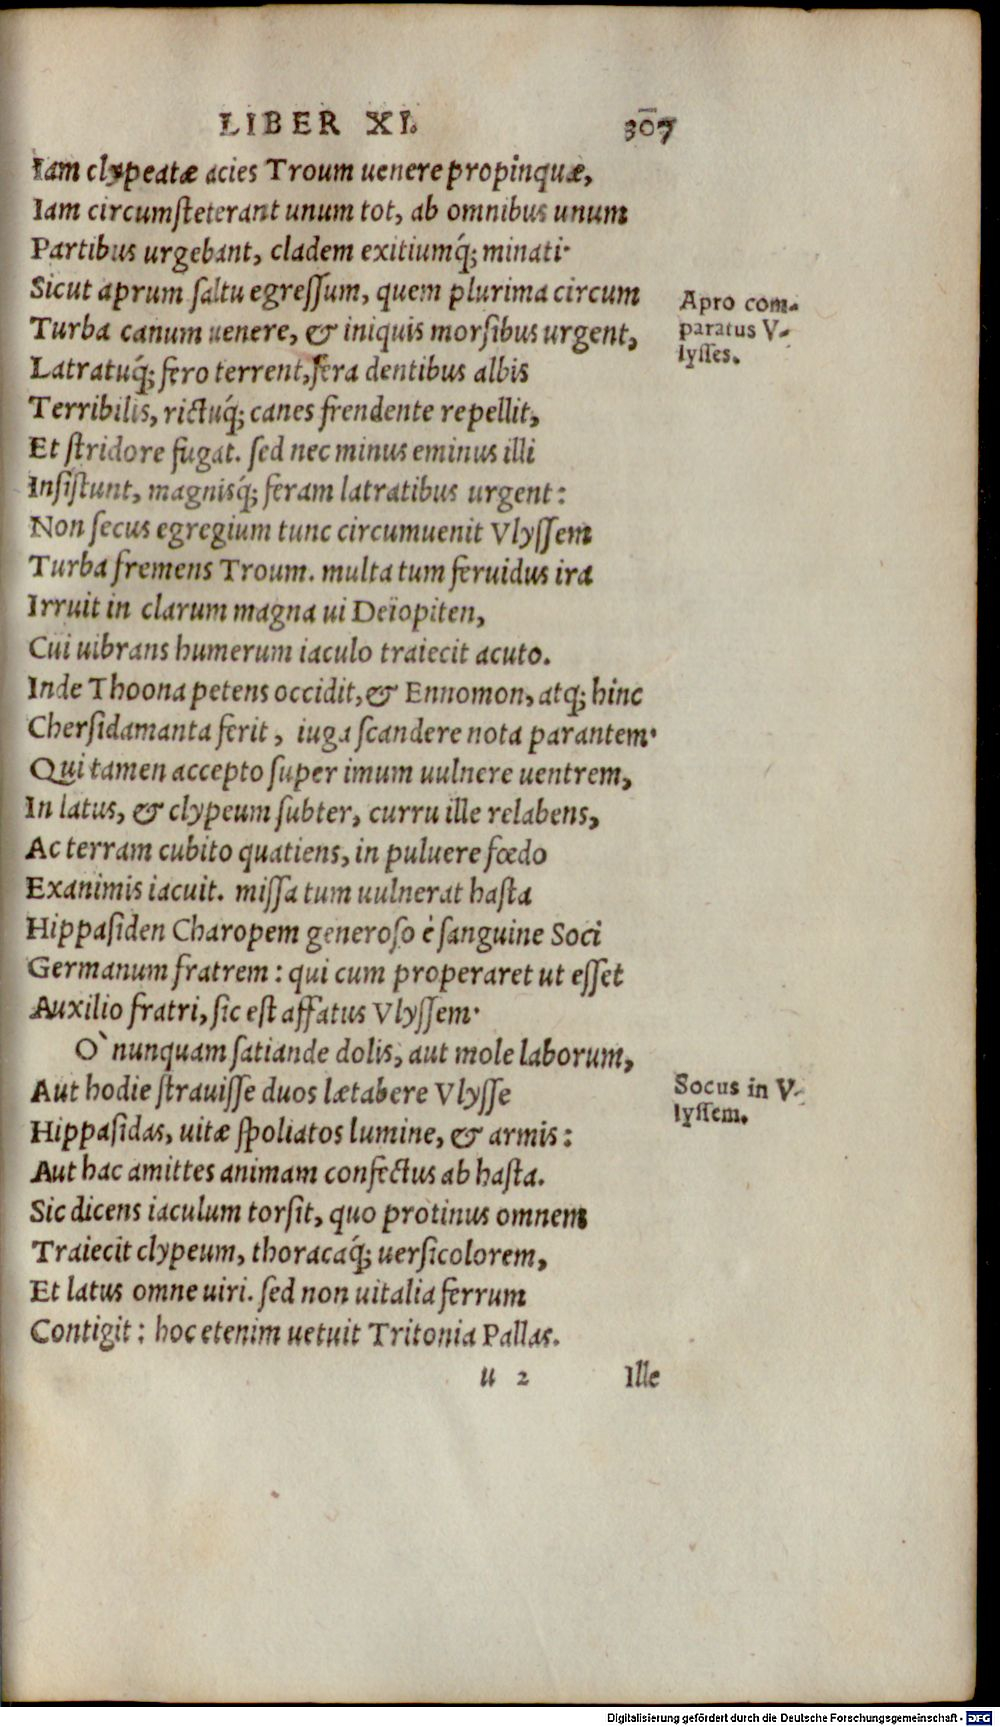 LIBER XI. 307
Iam clypeatæ acies Troum uenere propinquæ,
Iam circumſteterant unum tot, ab omnibus unum
Partibus urgebant, cladem exitiumq́; minati.
Sicut aprum ſaltu egreſſum, quem plurima circum
Turba canum uenere, & iniquis morſibus urgent,
Latratuq́; fero terrent, fera dentibus albis
Terribilis, rictuq́; canes frendente repellit,
Et ſtridore fugat. ſed nec minus eminus illi
Inſiſtunt, magnisq́; feram latratibus urgent:
Non ſecus egregium tunc circumuenit Vlyſſem
Turba fremens Troum. multa tum feruidus ira
Irruit in clarum magna ui Deïopiten,
Cui uibrans humerum iaculo traiecit acuto.
Inde Thoona petens occidit, & Ennomon, atq; hinc
Cherſidamanta ferit, iuga ſcandere nota parantem.
Qui tamen accepto ſuper imum uulnere uentrem,
In latus, & clypeum ſubter, curru ille relabens,
Ac terram cubito quatiens, in puluere fœdo
Exanimis iacuit. miſſa tum uulnerat haſta
Hippaſiden Charopem generoſo è ſanguine Soci
Germanum fratrem: qui cum properaret ut eſſet
Auxilio fratri, ſic eſt affatus Vlyſſem.
O` nunquam ſatiande dolis, aut mole laborum,
Aut hodie ſtrauiſſe duos lætabere Vlyſſe
Hippaſidas, uitæ ſpoliatos lumine, & armis:
Aut hac amittes animam confectus ab haſta.
Sic dicens iaculum torſit, quo protinus omnem
Traiecit clypeum, thoracaq́; uerſicolorem,
Et latus omne uiri. ſed non uitalia ferrum
Contigit: hoc etenim uetuit Tritonia Pallas.
u 2 Ille
Apro com-
paratus V-
lyſſes.
Socus in V-
lyſſem.
Digitalisierung gefördert durch die Deutsche Forschungsgemeinschaft - DFG